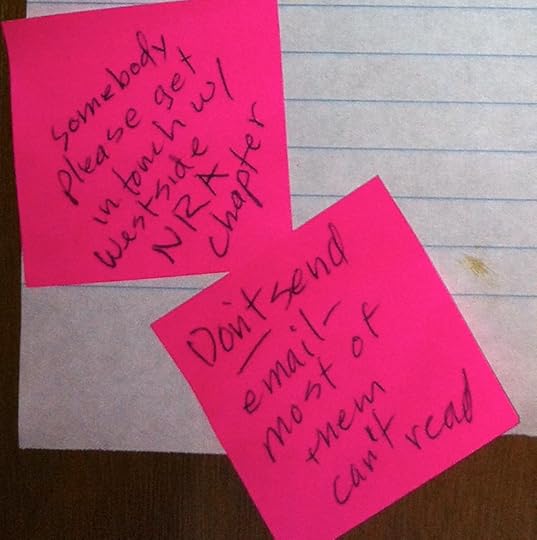 Somebody
Please get
in touch w/
Westside
NRA
Chapter
Don't send
email-
most of
them
can't read